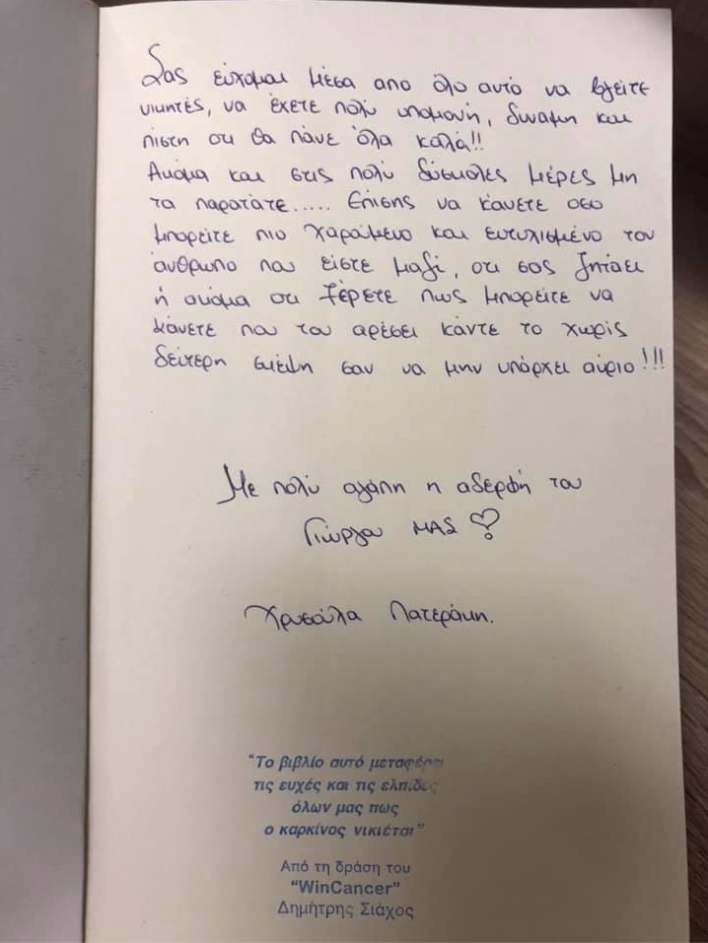 Σας εύχομαι μέσα απο όλο αυτό να βγείτε
νικητές, να έχετε πολύ υπομονή, δύναμη και
πίστη οτι θα πάνε όλα καλά!!
Ακόμα και στις πολύ δύσκολες μέρες μη
τα παρατάτε..... Επίσης να κάνετε οσο
μπορείτε πιο χαρούμενο και ευτυχισμένο τον
άνθρωπο που είστε μαζί, οτι σας ζητάει
ή ακόμα οτι ξέρετε πως μπορείτε να
κάνετε που του αρέσει κάντε το χωρίς
δεύτερη σκέψη σαν να μην υπάρχει αύριο!!!
Με πολύ αγάπη η αδερφή του
Γιώργου ΜΑΣ
Χρυσούλα Πατεράκη.
"Το βιβλίο αυτό μεταφέρει
τις ευχές και τις ελπίδες
όλων μας πως
ο καρκίνος νικιέται"
Από τη δράση του
"WinCancer"
Δημήτρης Σιάχος